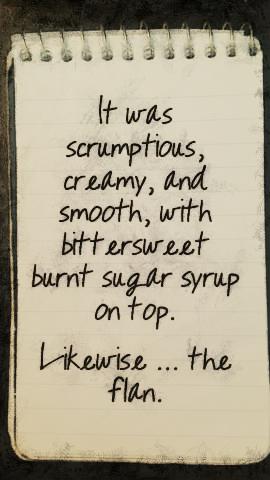 It was
scrumptious,
creamy, and
smooth, with
bittersweet
burnt sugar syrup
on top.
Likewise ... the
flan.